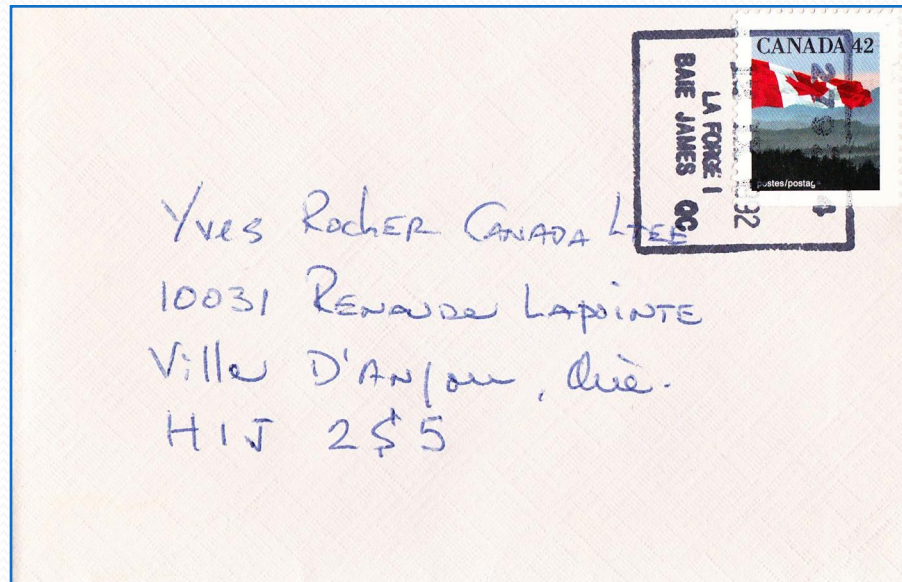 CANADA 42
postes/postag
LA FORGE 1
BAIE JAMES QC
Yves Rocher Canada Ltée
10031 Renaude Lapointe
Ville D'Anjou, Qué.
H1J 2S5